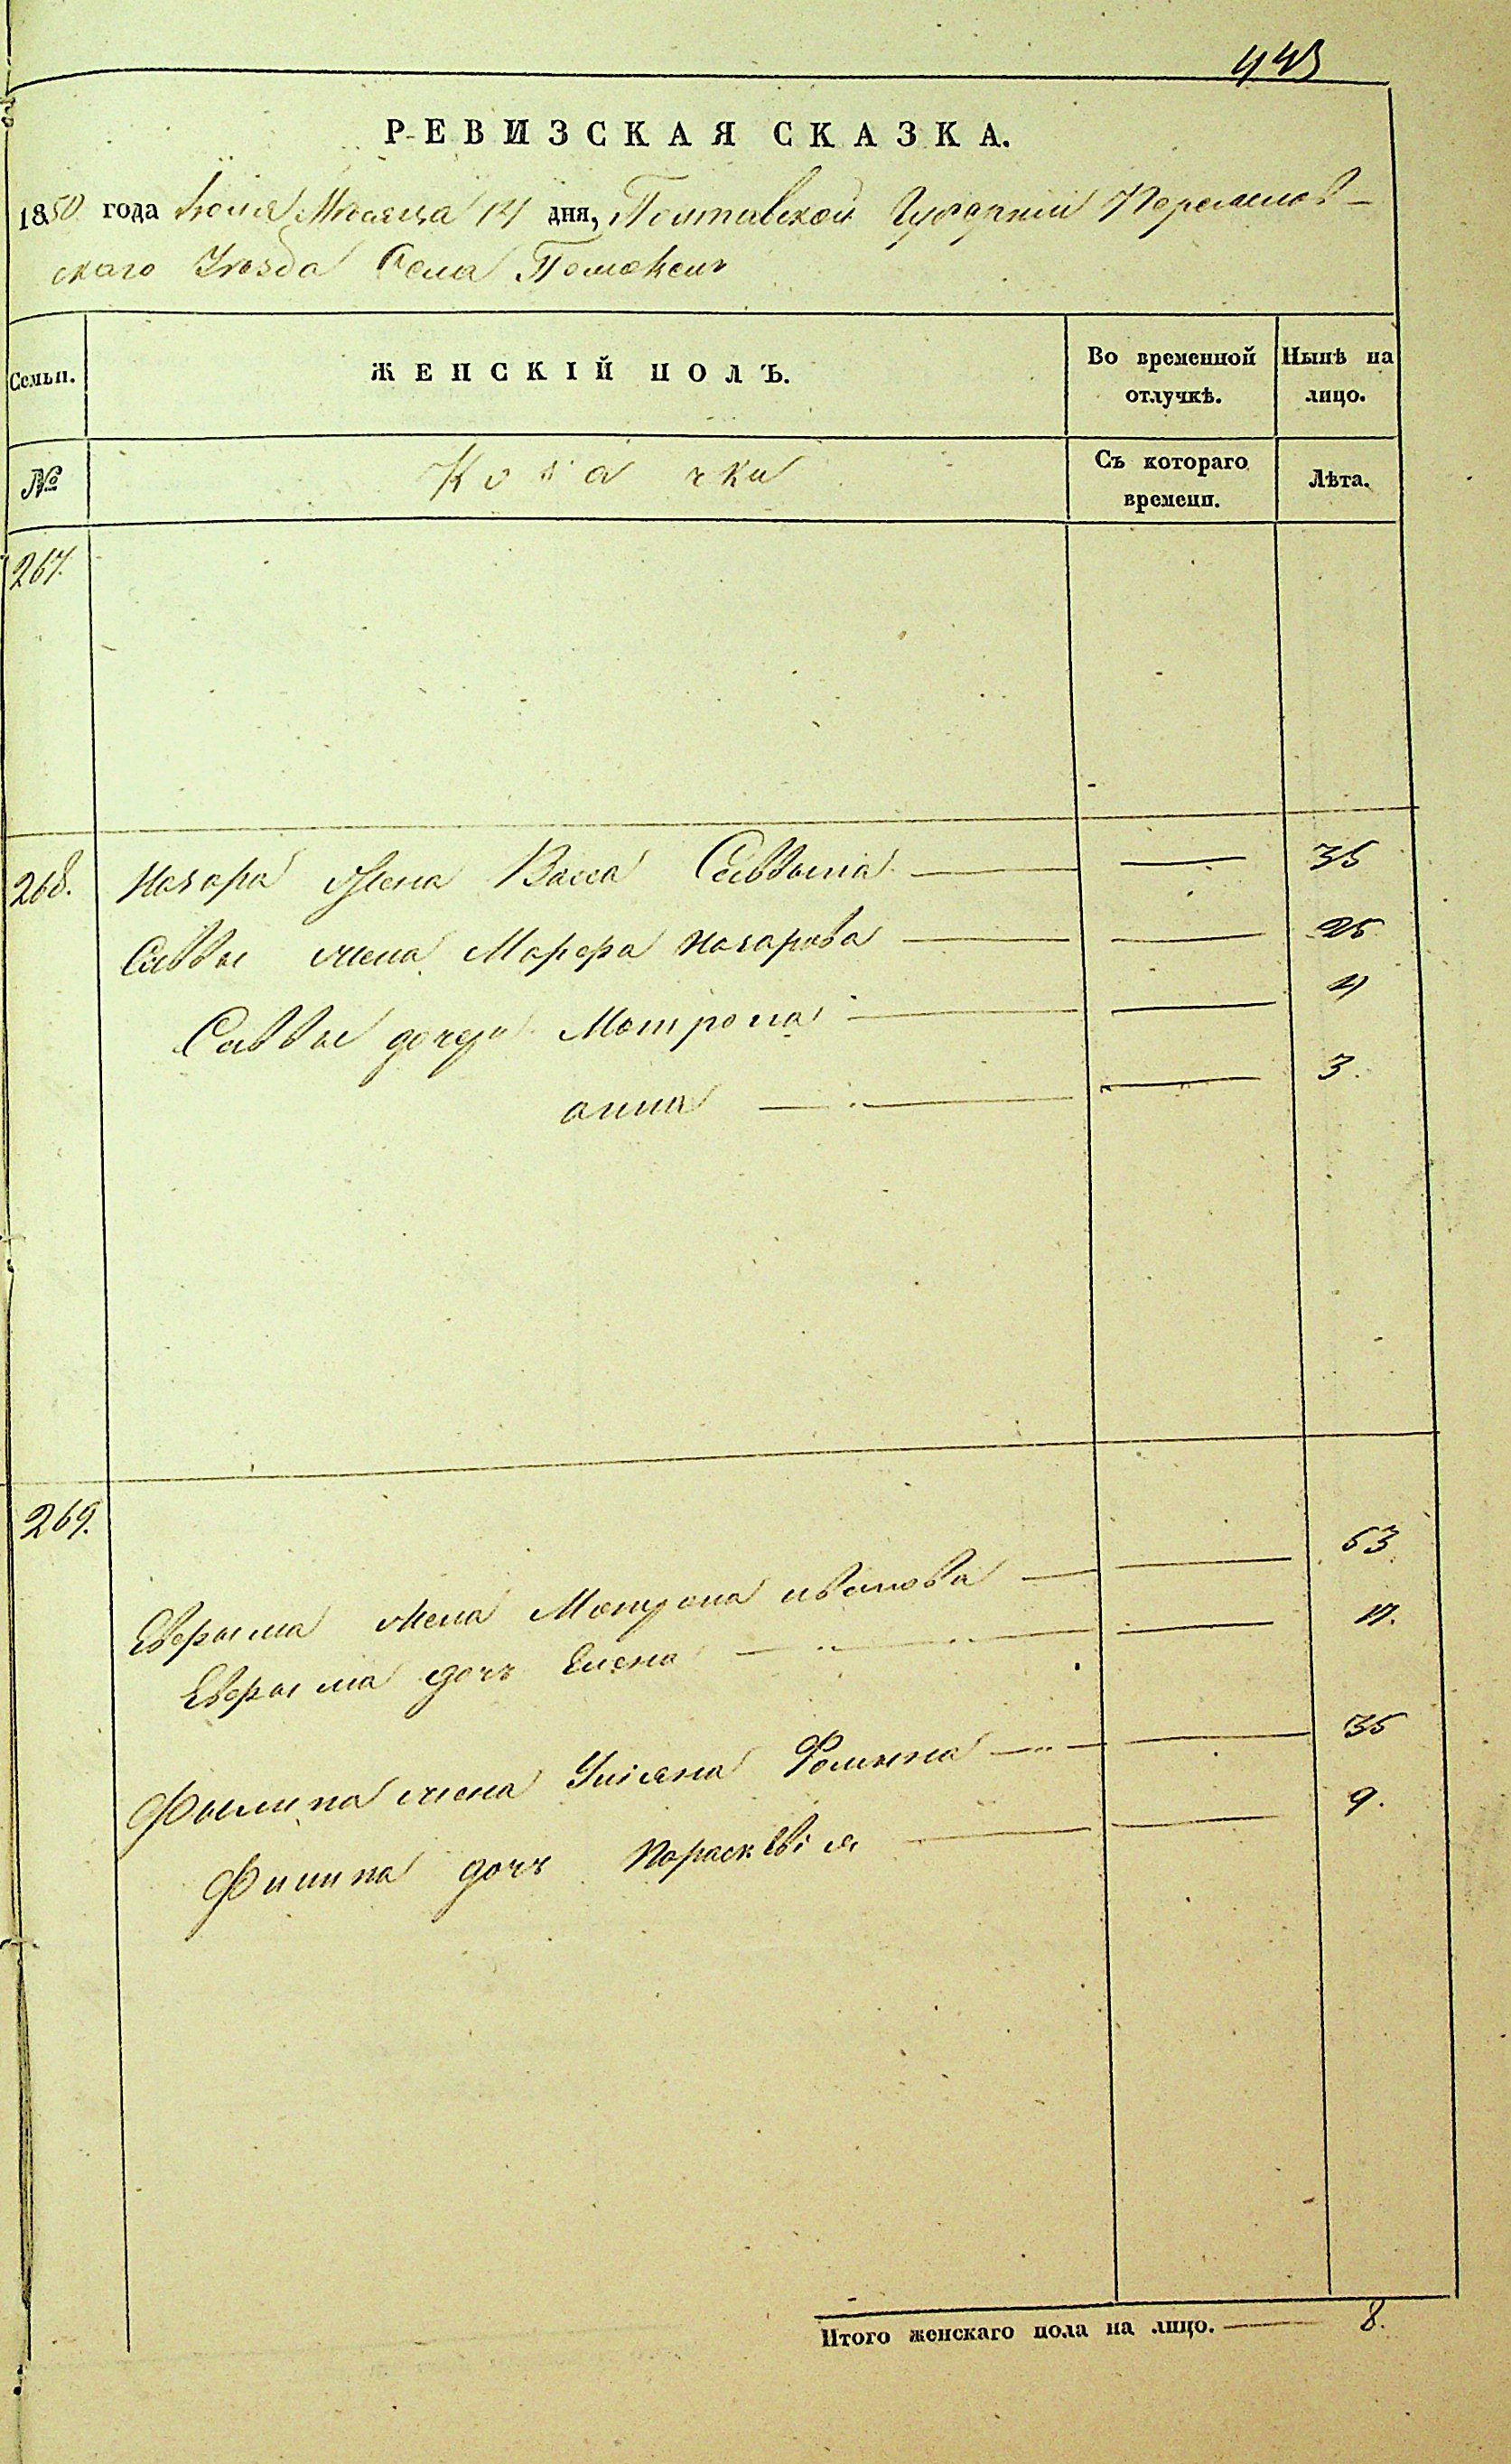 443
РЕВИЗСКАЯ СКАЗКА.
1850 года Июня Месяца 14 дня, Полтавской Губерніи Переяслов-
скаго Уезда Села Помокель
Семьи. ЖЕНСКІЙ ПОЛЪ. Во временной отлучкѣ. Нынѣ на лицо.
№ Козачки Съ котораго времени. Лѣта.
267.
268. Назара Жена Васса Саввина 35
Саввы жена Марфа Назарова 25
Саввы дочери Мотрона 4
анна 3.
269.
жена Мотрона иванова 53
дочь Елена 17.
Филипа жена Уліяна Фомина 35
Филипа дочь Параскевія 9.
Итого женскаго пола на лицо. 8.